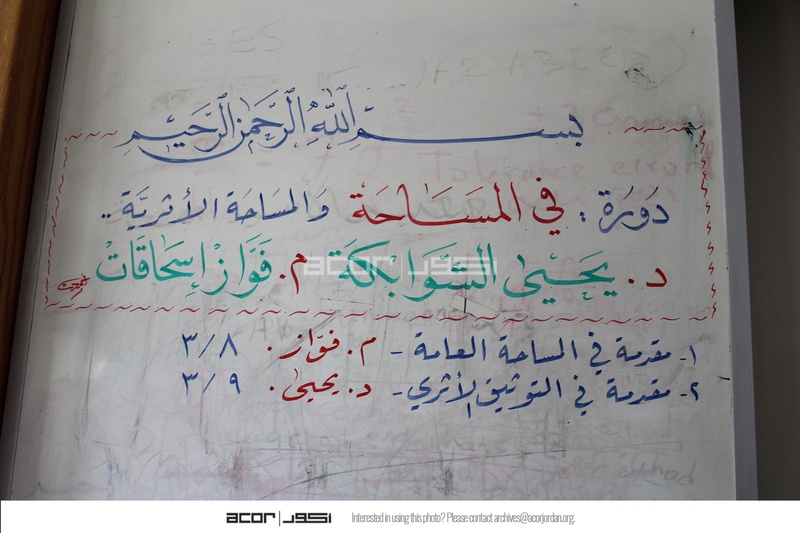 بسم الله الرحمن الرحيم
دَورَة : في المَسَاحَة وَالمسَاحَة الأثريَّة ..
د. يحيىٰ الشَّوَابكَة م. فَوَّاز إسحَاقَاتْ
١- مقدمة في المساحة العامة - م. فوّاز . ٣/٨
٢- مقدمة في التوثيق الأثري - د. يحيىٰ . ٣/٩
Tolerance error
acor | أكور
acor | أكور Interested in using this photo? Please contact archives@acorjordan.org.